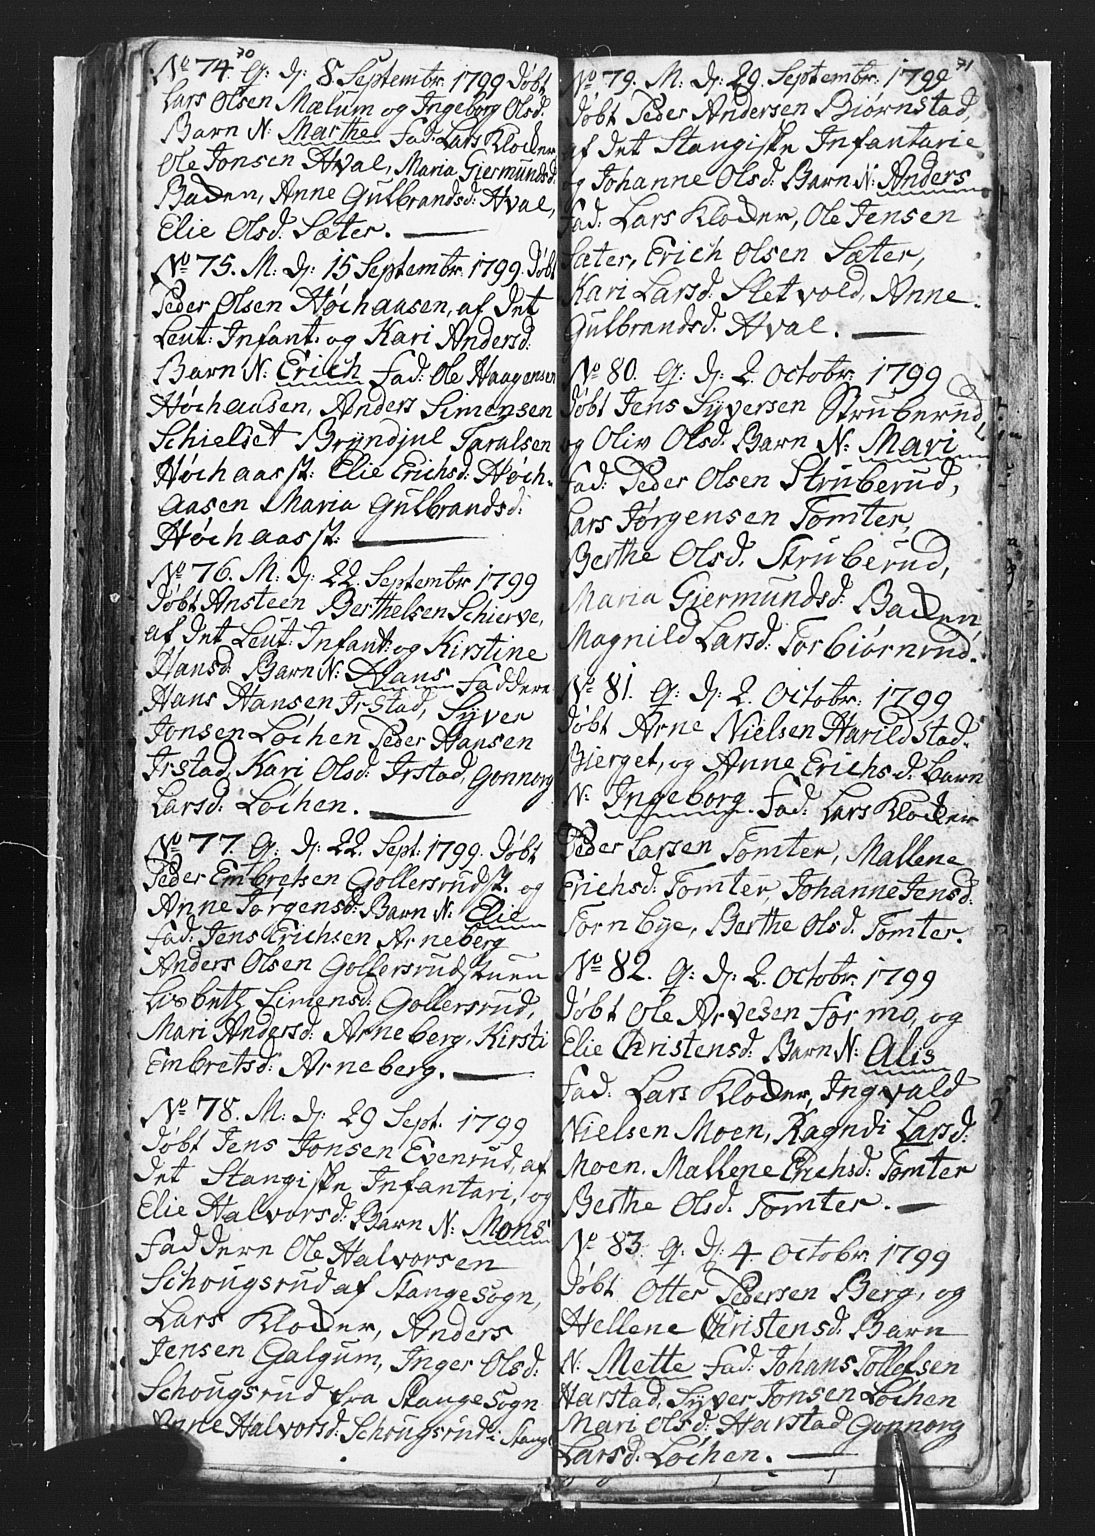 70
No 74. Q: d: 8. Septembr. 1799 døbt
Lars Olsen Mælum og Ingeborg Olsd.
Barn N: Marthe Fad: Lars Kloder
Ole Jonsen Hval, Maria Giermundsd:
Badden, Anne Gulbrandsd: Hval,
Elie Olsd. Sæter.
No 75. M: d: 15 Septembr. 1799. døbt
Peder Olsen Høichaasen, af det
Leut: Infant: og Kari Andersd:
Barn N: Erich Fad: Ole Haagensen
Høichaasen, Anders Simensen
Schieliet Bryndjul Taralsen
Høichaasst: Elie Erichsd: Høich-
aasen Maria Gulbrandsd:
Høichaasst:
No 76. M: d: 22. Septembr. 1799
døbt Ansteen Berthelsen Schierve,
af det Leut: Infant: og Kirstine
Hansd: Barn N: Hans Faddere
Hans Hansen Irstad, Syver
Jonsen Løchen Peder Hansen
Irstad, Kari Olsd: Irstad, Gonnorg
Larsd: Løchen.
No 77. Q: d: 22. Sept: 1799. døbt
Peder Embretsen Gollersrudst. og
Anne Jørgensd: Barn N: Elie
Fad: Jens Erichsen Arneberg
Anders Olsen Gollersrudstuen
Lisbeth Simensd: Gollersrud,
Mari Andersd: Arneberg, Kirsti
Embretsd: Arneberg.
No 78. M: d: 29 Sept. 1799
døbt Jens Jonsen Evenrud, af
det Stangiske Infantari, og
Elie Halvorsd: Barn N: Mons
Faddere Ole Halvorsen
Schougsrud af Stange Sogn,
Lars Kloder, Anders
Jensen Galgum, Inger Olsd:
Schougsrud fra Stange Sogn
Anne Halvorsd: Schougsrud i Stange
71
No 79. M: d: 29. Septembr. 1799
døbt Peder Andersen Biørnstad,
af det Stangiske Infantarie
og Johanne Olsd: Barn N: Anders
Fad: Lars Kloder, Ole Jensen
Sæter, Erich Olsen Sæter,
Kari Larsd: Sletvold, Anne
Gulbrandsd. Hval.
No 80. Q: d: 2. Octobr. 1799
døbt Jens Syversen Struberud,
og Oliv Olsd: Barn N: Mari
Fad: Peder Olsen Struberud,
Lars Jørgensen Tomter,
Berthe Olsd. Struberud,
Maria Giermundsd: Badden,
Magnild Larsd: Torbiørnrud.
No 81. Q: d: 2. Octobr. 1799
døbt Arne Nielsen Harildstad-
Bierget, og Anne Erichsd. Barn
N: Ingeborg. Fad: Lars Kloder
Peder Larsen Tomter, Mallene
Erichsd: Tomter, Johanne Jensd:
Tornbye, Berthe Olsd: Tomter.
No 82. Q: d: 2. Octobr. 1799
døbt Ole Arvesen Formo, og
Elie Christensd: Barn N: Alis
Fad: Lars Kloder, Ingvald
Nielsen Moen, Ragndi Larsd:
Moen. Mallene Erichsd: Tomter
Berthe Olsd. Tomter.
No 83. Q: d: 4. Octobr. 1799
døbt Otter Pedersen Berg, og
Hellene Christensd: Barn
N: Mette Fad: Johans Tollofsen
Harstad, Syver Jonsen Løchen
Mari Olsd: Harstad Gonnorg
Larsd: Løchen.